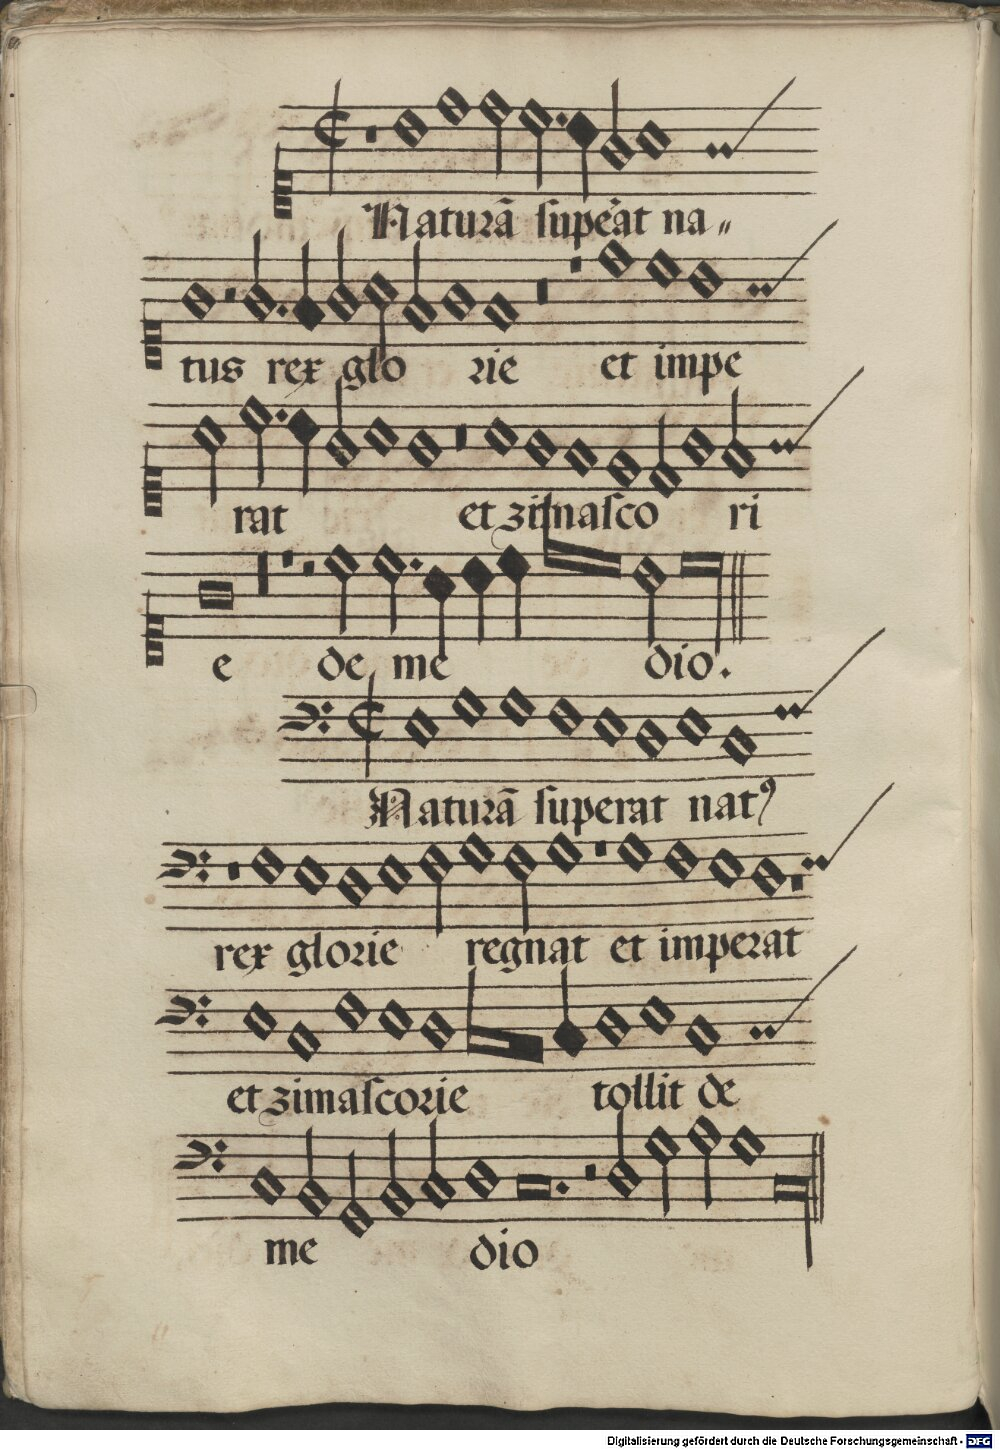 Naturā supe'at na〃
tus rex glo rie et impe
rat et zimasco ri
e de me dio.
Naturā superat natꝰ
rex glorie regnat et imperat
et zimascorie tollit de
me dio
Digitalisierung gefördert durch die Deutsche Forschungsgemeinschaft - DFG